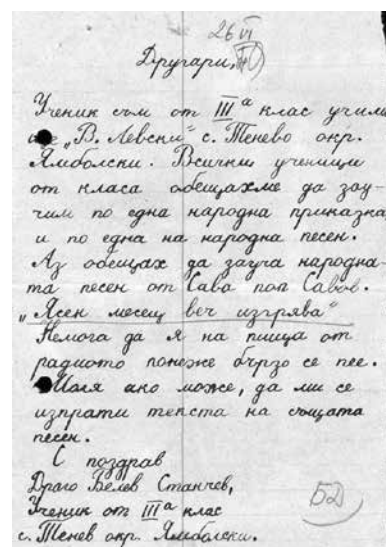 26 VI
Другари,
Ученик съм от III а клас учили
ще „В. Левски" с. Тенево окр.
Ямболски. Всички ученици
от класа обещахме да зау-
чим по една народна приказка
и по една на народна песен.
Аз обещах да зауча народна-
та песен от Сава поп Савов.
„Ясен месец веч изгрява"
Немога да я на пиша от
радиото понеже бързо се пее.
Моля ако може, да ми се
изпрати текста на същата
песен.
С поздрав
Драго Белев Станчев,
Ученик от III а клас
с. Тенев окр. Ямболски.
БД